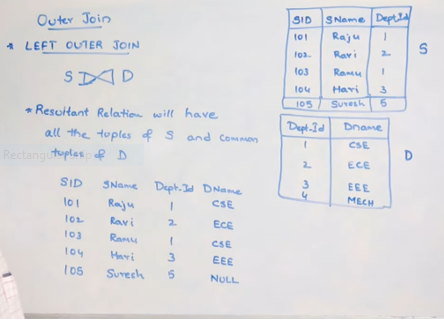 Outer Join
* LEFT OUTER JOIN
S ⟕ D
* Resultant Relation will have
all the tuples of S and common
tuples of D
SID SName Dept.Id DName
101 Raju 1 CSE
102 Ravi 2 ECE
103 Ramu 1 CSE
104 Hari 3 EEE
105 Suresh 5 NULL
SID SName Dept.Id
101 Raju 1
102 Ravi 2
103 Ramu 1
104 Hari 3
105 Suresh 5
S
Dept.Id Dname
1 CSE
2 ECE
3 EEE
4 MECH
D